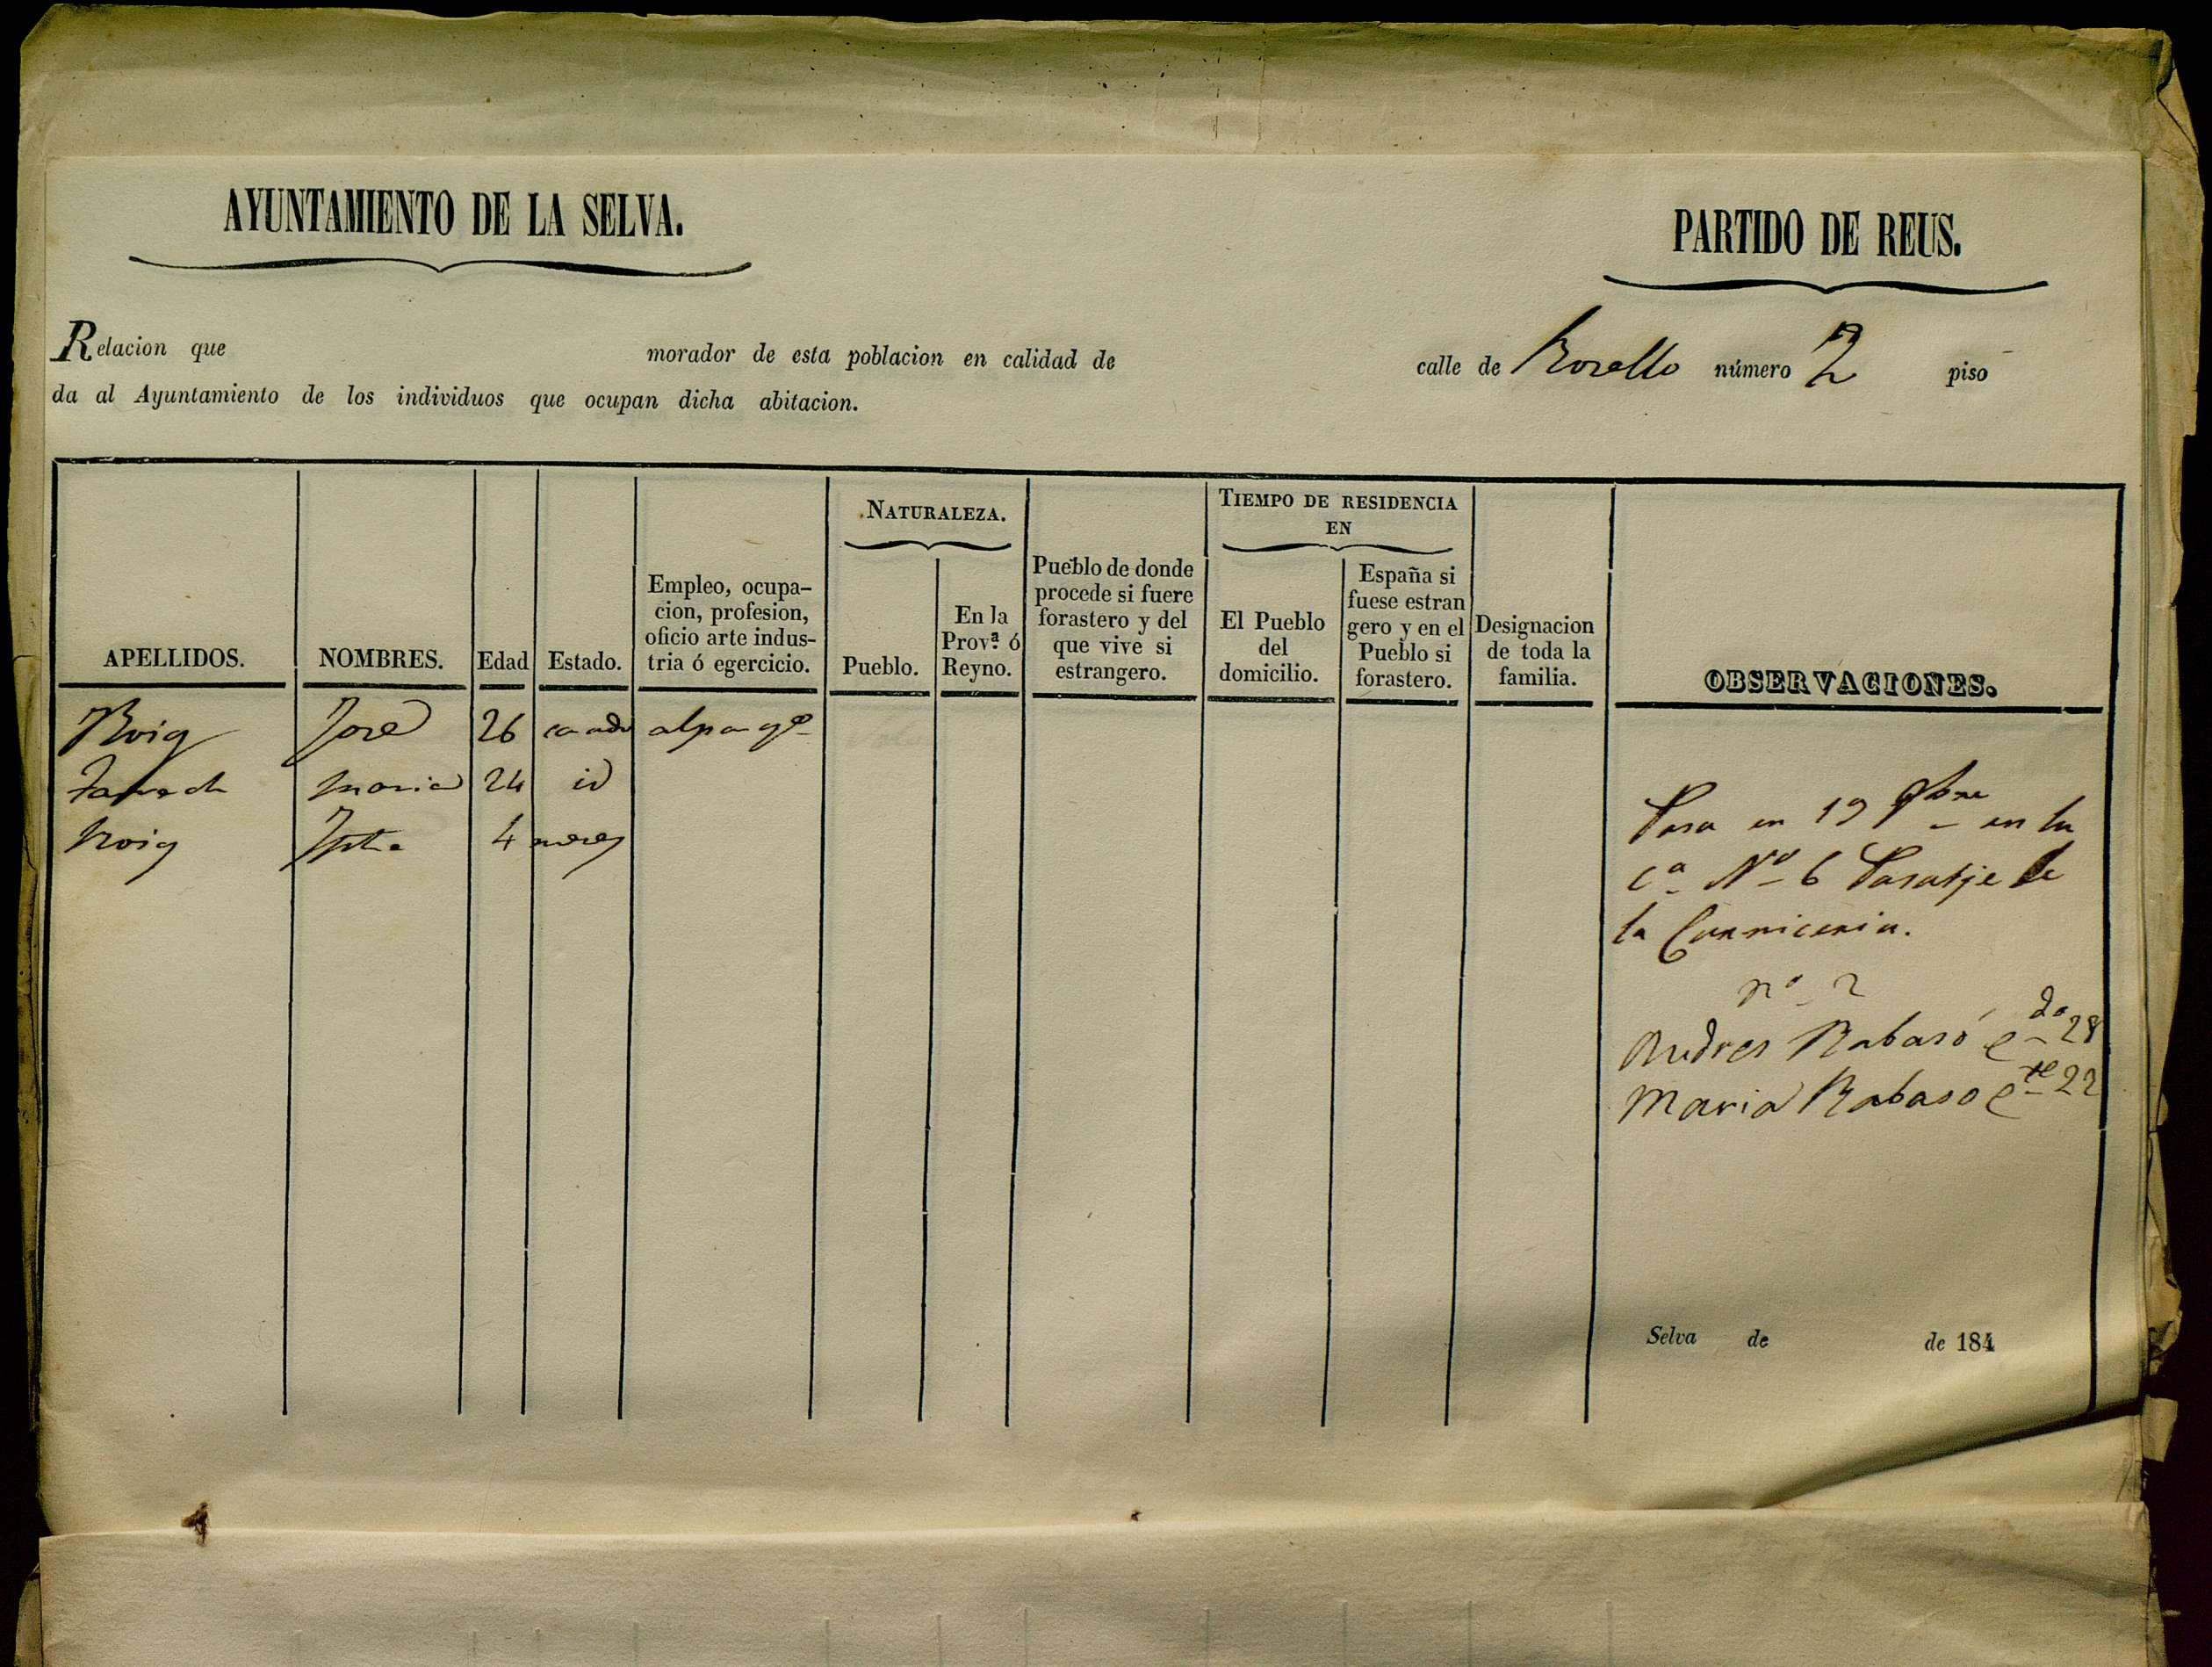 AYUNTAMIENTO DE LA SELVA.
PARTIDO DE REUS.
Relacion que morador de esta poblacion en calidad de calle de Rosello número 2 piso
da al Ayuntamiento de los individuos que ocupan dicha abitacion.
NATURALEZA.
TIEMPO DE RESIDENCIA
EN
APELLIDOS.
NOMBRES.
Edad
Estado.
Empleo, ocupa-
cion, profesion,
oficio arte indus-
tria ó egercicio.
Pueblo.
En la
Prov.ª ó
Reyno.
Pueblo de donde
procede si fuere
forastero y del
que vive si
estrangero.
El Pueblo
del
domicilio.
España si
fuese estran
gero y en el
Pueblo si
forastero.
Designacion
de toda la
familia.
OBSERVACIONES.
Roig José 26 casado alparg.o
Maria 24 id
Roig 4 meses
Pasa en 19 9bre en la
Cª Nº 6 Pasatje de
la Carniceria.
nº 2
Andres Rabasó e.do 28
Maria Rabaso e.te 22
Selva de de 184